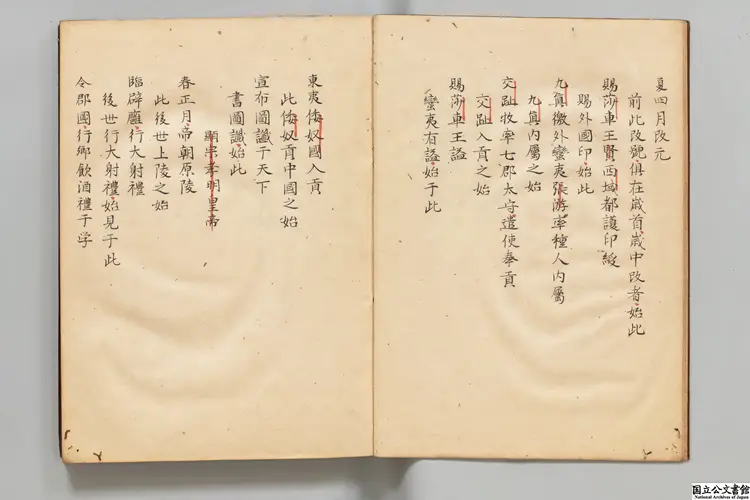 夏四月改元
前此改號俱在歲首歲中改者始此
賜莎車王賢西域都護印綬
賜外國印始此
九真徼外蠻夷張游率種人內屬
九真內屬之始
交趾牧率七郡太守遣使奉貢
交趾入貢之始
賜莎車王謚
蠻夷有謚始于此
東夷倭奴國入貢
此倭奴貢中國之始
宣布圖讖于天下
書圖讖始此
顯宗孝明皇帝
春正月帝朝原陵
此後世上陵之始
臨辟廱行大射禮
後世行大射禮始見于此
令郡國行鄉飲酒禮于学
国立公文書館
National Archives of Japan